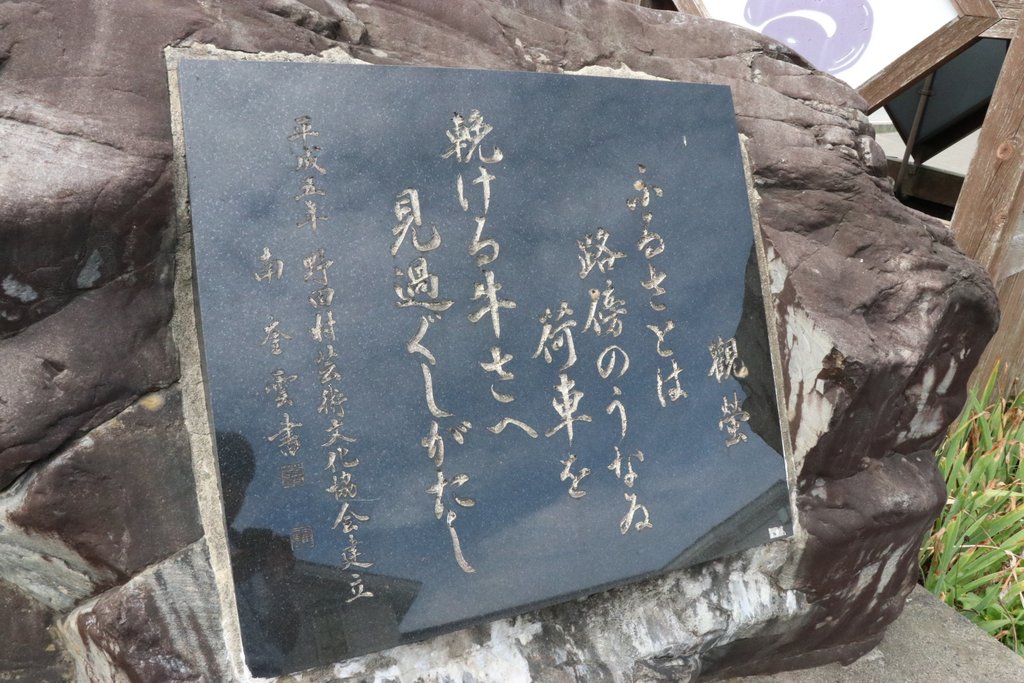 觀螢
ふるさとは
路傍のうなゐ
荷車を
輓ける牛さへ
見過ぐしがたし
平成五年 野田村芸術文化協会建立
南 雲書